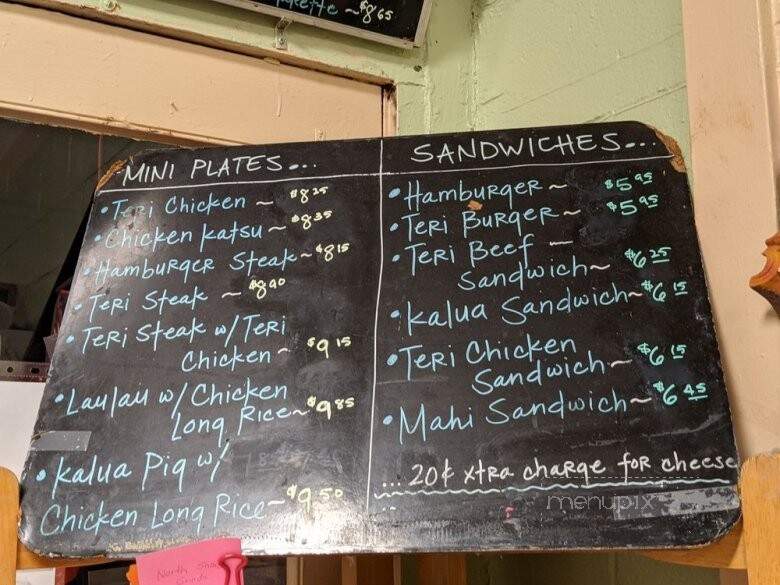 ~ $8.65
MINI PLATES...
• Teri Chicken ~ $8.25
• Chicken Katsu ~ $8.35
• Hamburger Steak ~ $8.15
• Teri Steak ~ $8.90
• Teri Steak w/ Teri
Chicken ~ $9.15
• Laulau w/ Chicken
Long Rice ~ $9.85
• Kalua Pig w/
Chicken Long Rice ~ $9.50
SANDWICHES...
• Hamburger ~ $5.95
• Teri Burger ~ $5.95
• Teri Beef
Sandwich ~ $6.25
• Kalua Sandwich ~ $6.15
• Teri Chicken
Sandwich ~ $6.15
• Mahi Sandwich ~ $6.45
... 20¢ xtra charge for cheese
menupix
North